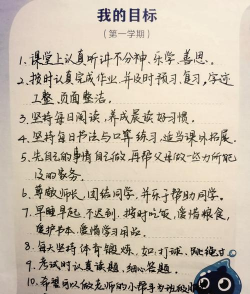 我的目标
（第一学期）
1、课堂上认真听讲不分神、乐学、善思。
2、按时认真完成作业，并及时预习、复习。字迹
工整、页面整洁。
3、坚持每日阅读，养成晨读好习惯。
4、坚持每日书法与口算练习，适当课外拓展。
5、先自己的事情自己做，再帮父母做一些力所能
及的家务。
6、尊敬师长，团结同学，并乐于帮助同学。
7、早睡早起，不迟到，按时吃饭，爱惜粮食，
爱护书本，爱惜学习用品。
8、每天坚持体育锻炼，如：打球、跳绳
9、考试时认真读题、细心答题。
10、希望可以做老师的小帮手为班级